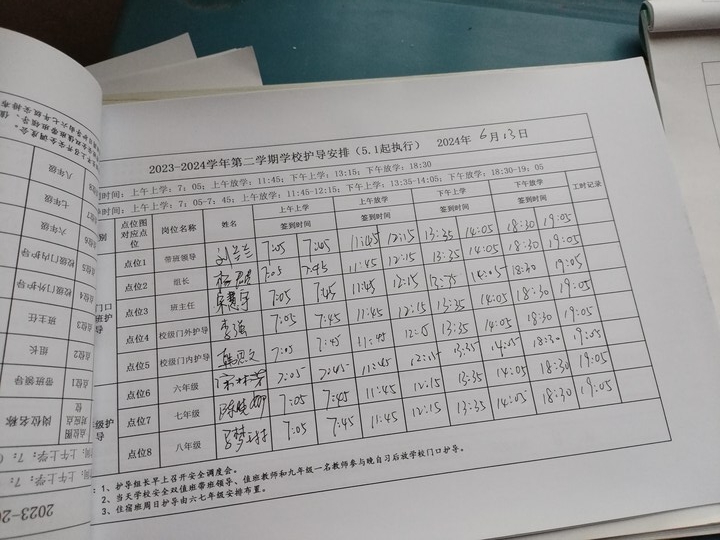 2023-2024学年第二学期学校护导安排（5.1起执行） 2024年 6月13日
时间：上午上学：7：05；上午放学：11:45；下午上学：13:15；下午放学：18:30
时间：上午上学：7：05-7：45；上午放学：11:45-12:15；下午上学：13:35-14:05；下午放学：18:30-19：05
点位图对应点位 岗位名称 姓名 上午上学 上午放学 下午上学 下午放学 工时记录
签到时间 签到时间 签到时间 签到时间
点位1 带班领导 刘兰兰 7:05 7:45 11:45 12:15 13:35 14:05 18:30 19:05
点位2 组长 7:05 7:45 11:45 12:15 13:35 14:05 18:30 19:05
点位3 班主任 宋慧宇 7:05 7:45 11:45 12:15 13:35 14:05 18:30 19:05
点位4 校级门外护导 李强 7:05 7:45 11:45 12:15 13:35 14:05 18:30 19:05
点位5 校级门内护导 韩思文 7:05 7:45 11:45 12:15 13:35 14:05 18:30 19:05
点位6 六年级 7:05 7:45 11:45 12:15 13:35 14:05 18:30 19:05
点位7 七年级 陈晓娜 7:05 7:45 11:45 12:15 13:35 14:05 18:30 19:05
点位8 八年级 7:05 7:45 11:45 12:15 13:35 14:05 18:30 19:05
：1、护导组长早上召开安全调度会。
2、当天学校安全双值班带班领导、值班教师和九年级一名教师参与晚自习后放学校门口护导。
3、住宿班周日护导由六七年级安排布置。
八年级
七年级
六年级
校级门内护导
校级门外护导 点位4
班主任 点位3
组长 点位2
带班领导 点位1
岗位名称